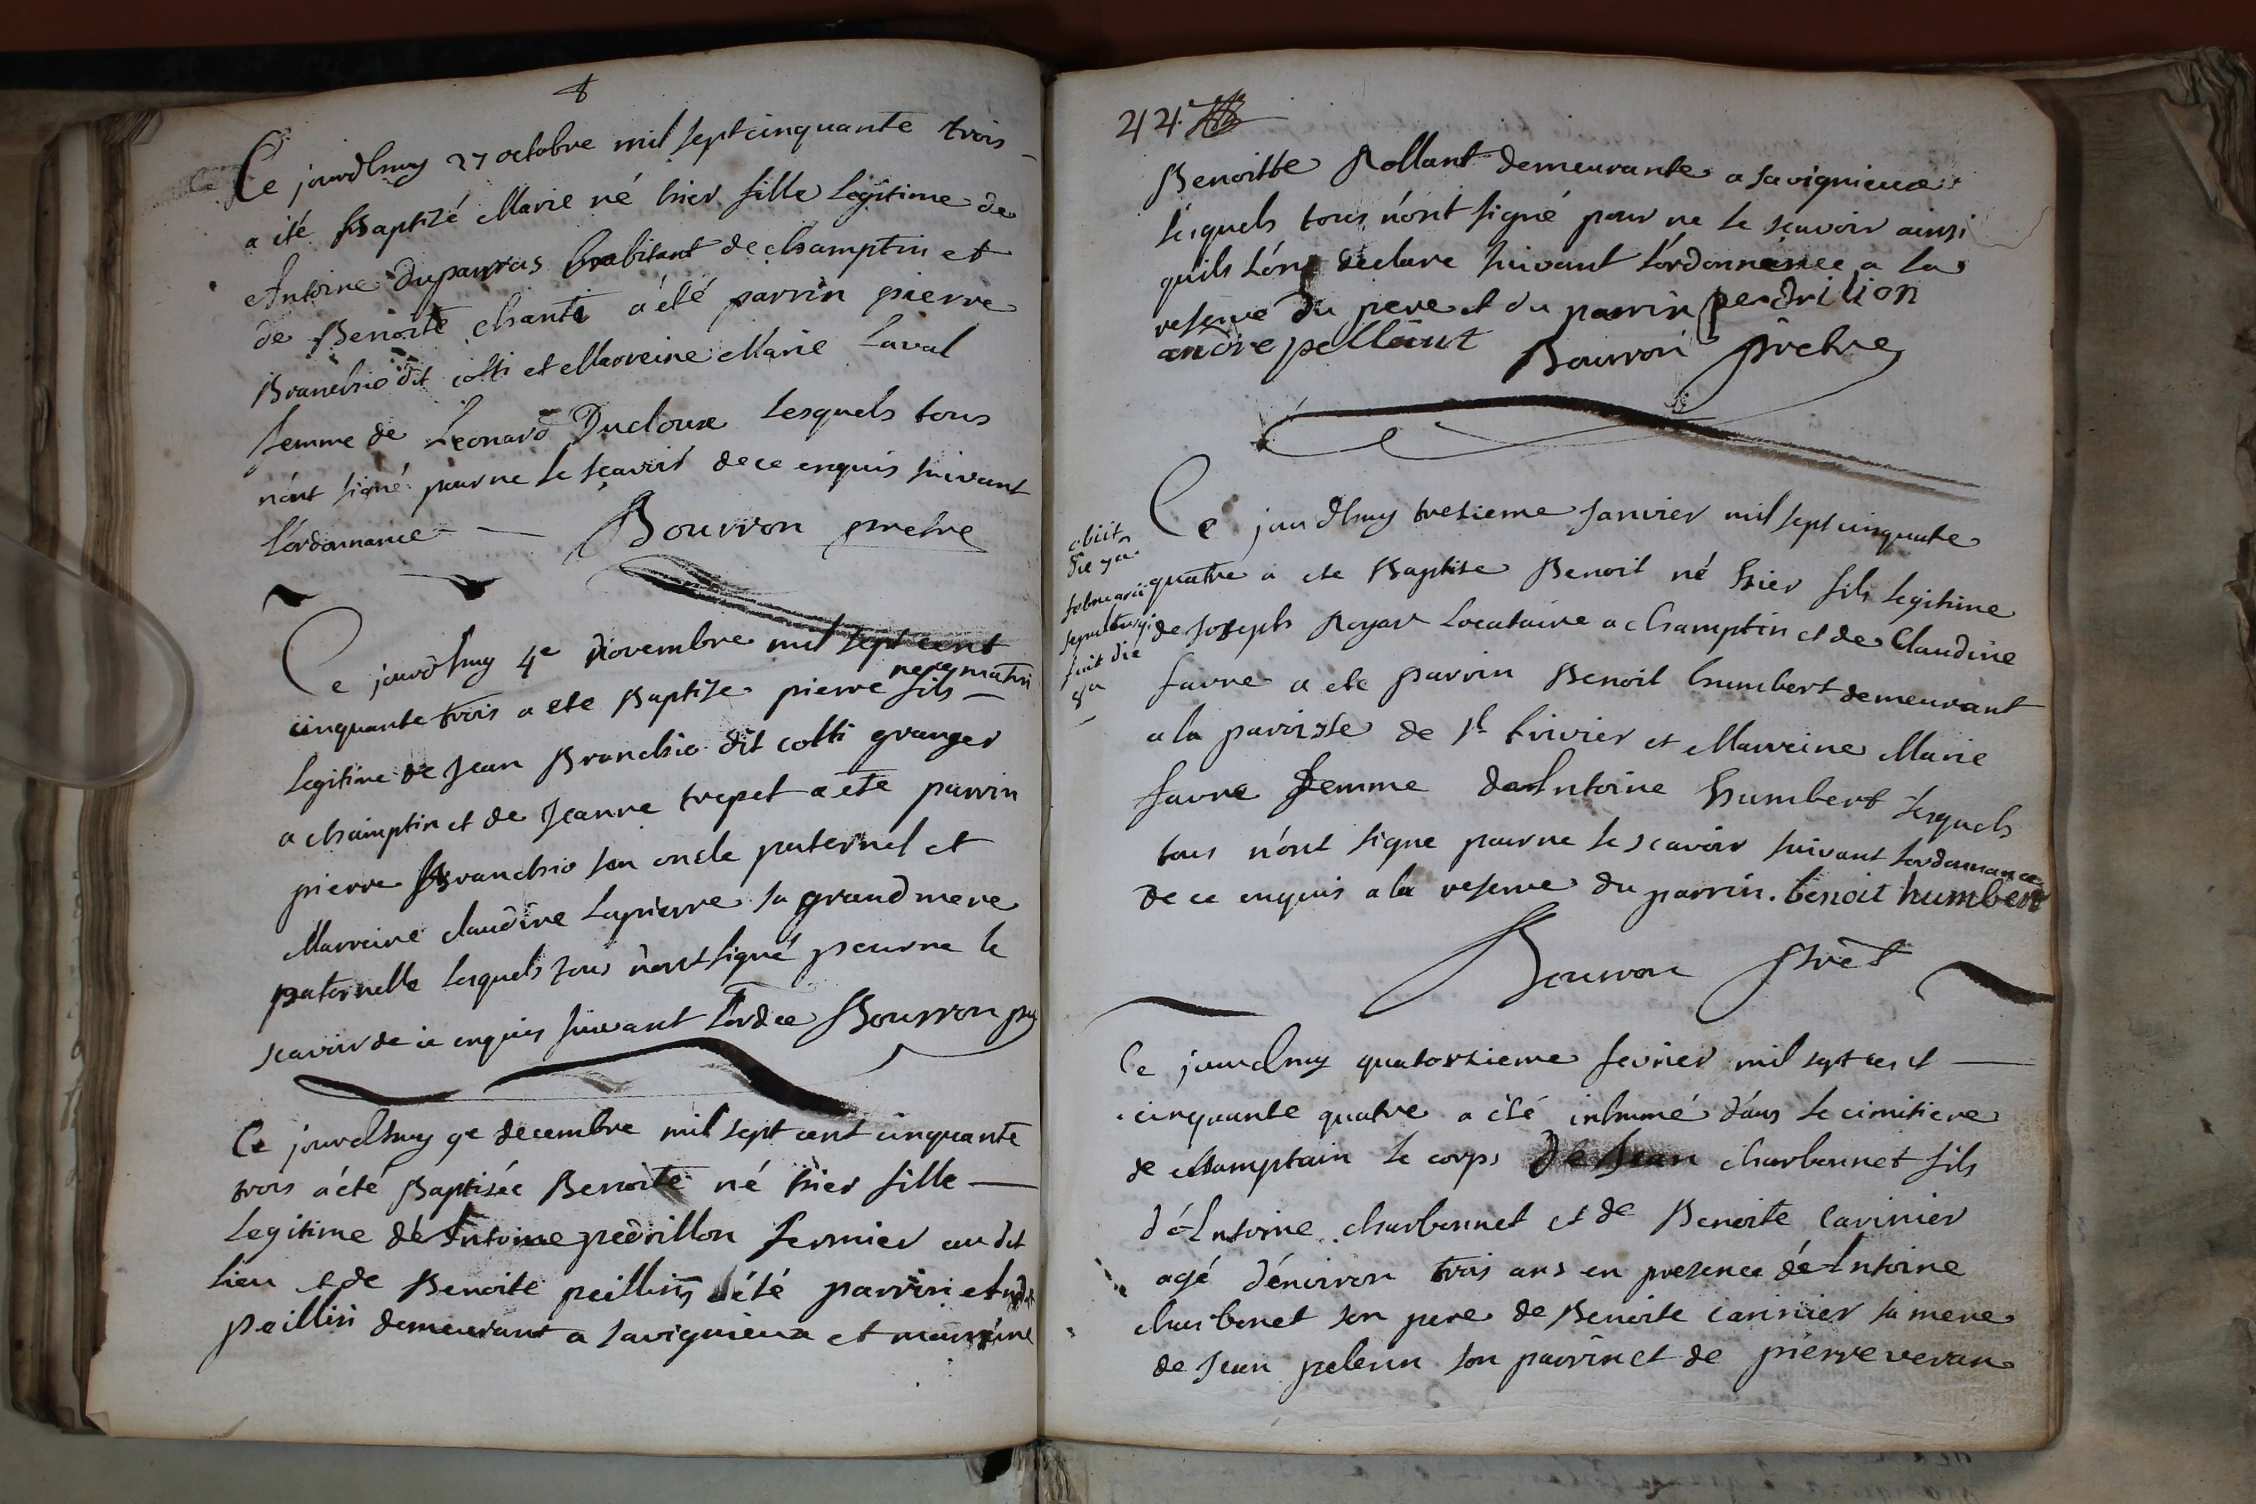 Ce jourdhuy 27 octobre mil sept cinquante trois
a été Baptizé Marie né hier fille Legitime de
Antoine Duparras habitant de champtin et
de Benoite chanti a'été parrin pierre
Branchio dit colti et Marreine Marie Laval
femme de Leonard Ducloux Lesquels tous
n'ont signé pour ne le sçavoir de ce enquis suivant
L'ordonnance Bourron pretre
Ce jourdhuy 4e Novembre mil sept cent
cinquante trois a ete Baptize pierre fils
legitime de Jean Branchio dit colti granger
a champtin et de Jeanne trepet a ete parrin
pierre Branchio son oncle paternel et
Marreine claudine Lapierre sa grand mere
paternelle lesquels tous n'ont signé pour ne le
scavoir de ce enquis suivant l'ordce Bourron
Ce jourdhuy 9e decembre mil sept cent cinquante
trois a'été Baptisée Benoite né hier fille
Legitime de Antoine pedrillon fermier audit
lieu et de Benoite peillin a'été parrin
peillin demeurant a savignieux et marreine
44e
Benoitte Rollant demeurante a savignieux
lesquels tous n'ont signé pour ne le sçavoir ainsi
quils l'ont declare suivant l'ordonnance a la
reserve du pere et du parrin perdrilion
andre pellant Bourron Pretre
Ce jourdhuy tresieme Janvier mil sept cinquante
quatre a ete Baptise Benoit né hier fils legitime
de Joseph Royar Locataire a champtin et de Claudine
favre a ete parrin Benoit humbert demeurant
a la paroisse de st trivier et Marreine Marie
favre femme de Antoine humbert lesquels
tous n'ont signe pour ne le scavoir suivant lordonnance
de ce enquis a la reserve du parrin. benoit humbert
Bourron Pret
obiit
die 7a
februarii
sepultus
fuit die
8a
Ce jourdhuy quatorsieme fevrier mil sept cent
cinquante quatre a été inhumé dans le cimitiere
de champtain le corps de Jean charbonnet fils
d'Antoine charbonnet et de Benoite carinier
agé d'environ trois ans en presence de Antoine
charbonet son pere de Benoite carinier sa mere
de Jean pelerin son parrin et de pierre veran